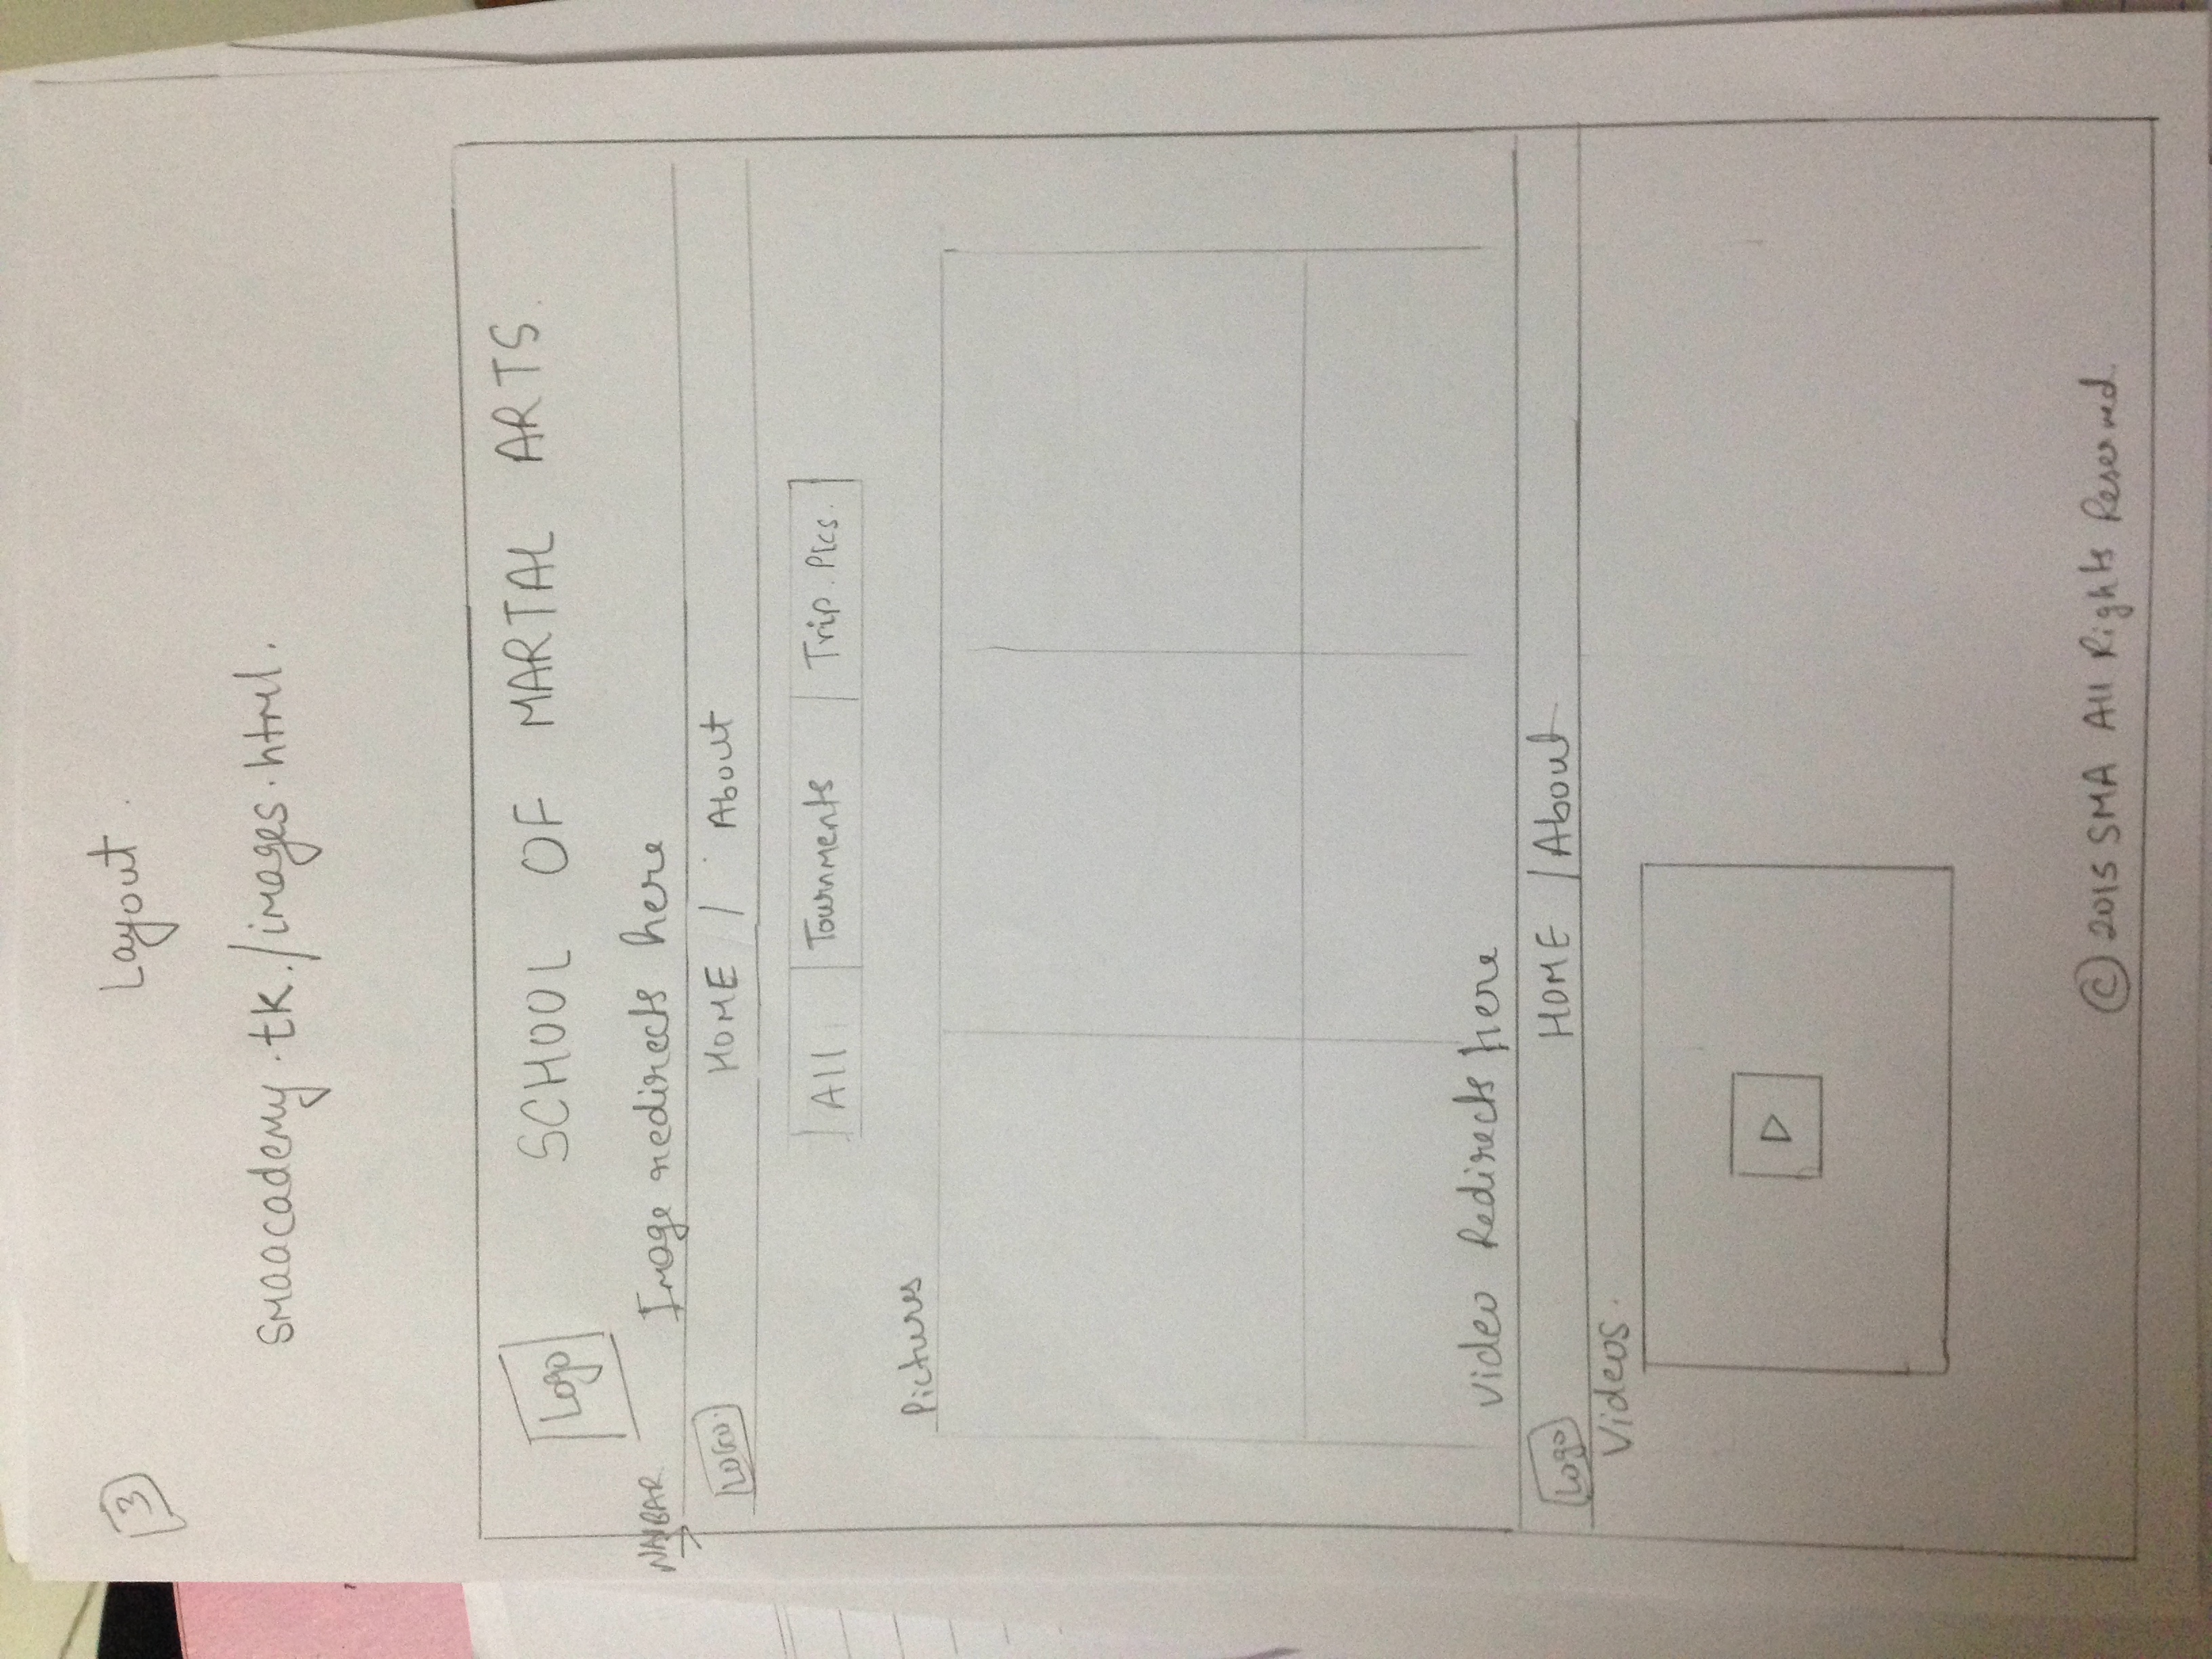 3
Layout.
smaacademy.tk./images.html.
Logo
SCHOOL OF MARTAL ARTS.
NAVBAR
Image redirects here
LOGO.
HOME / About
All Tournments Trip. Pics.
Pictures
Video Redirects here
Logo HOME / About
Videos.
© 2015 SMA All Rights Reserved.